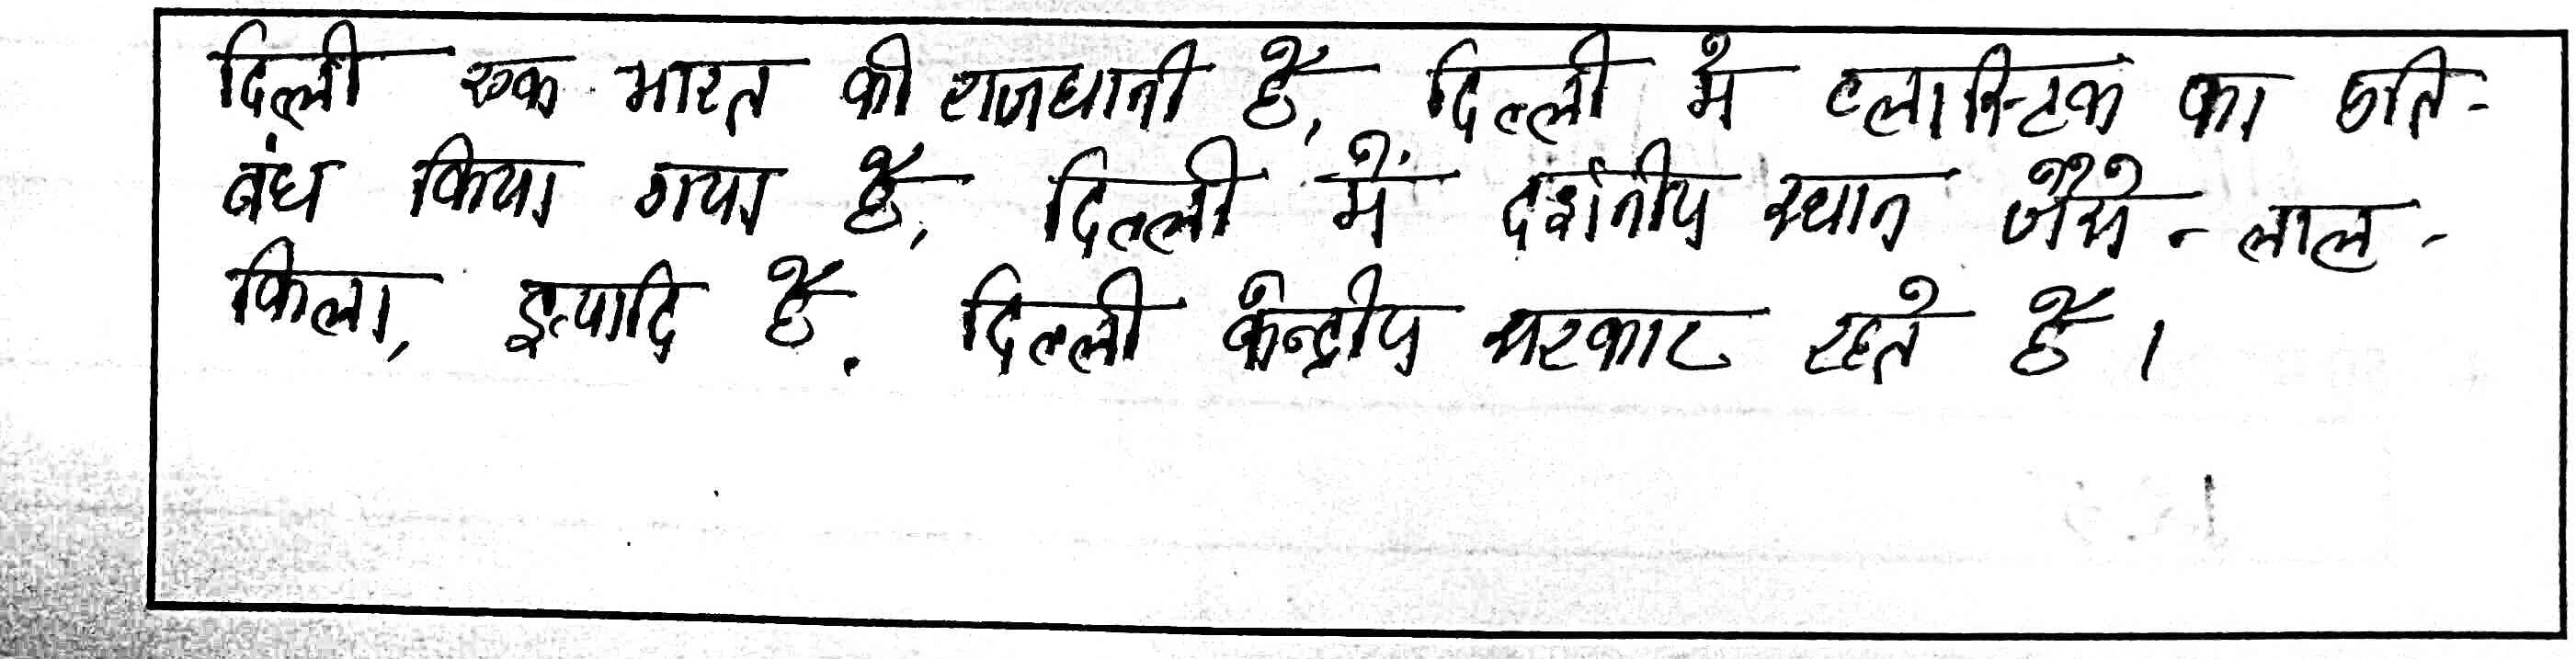 दिल्ली एक भारत की राजधानी हैं, दिल्ली मे प्लास्टिक का प्रति-
बंध किया गया हैं, दिल्ली में दर्शनीय स्थान जैसे - लाल -
किला, इत्यादि हैं. दिल्ली केन्द्रीय सरकार रहते हैं ।